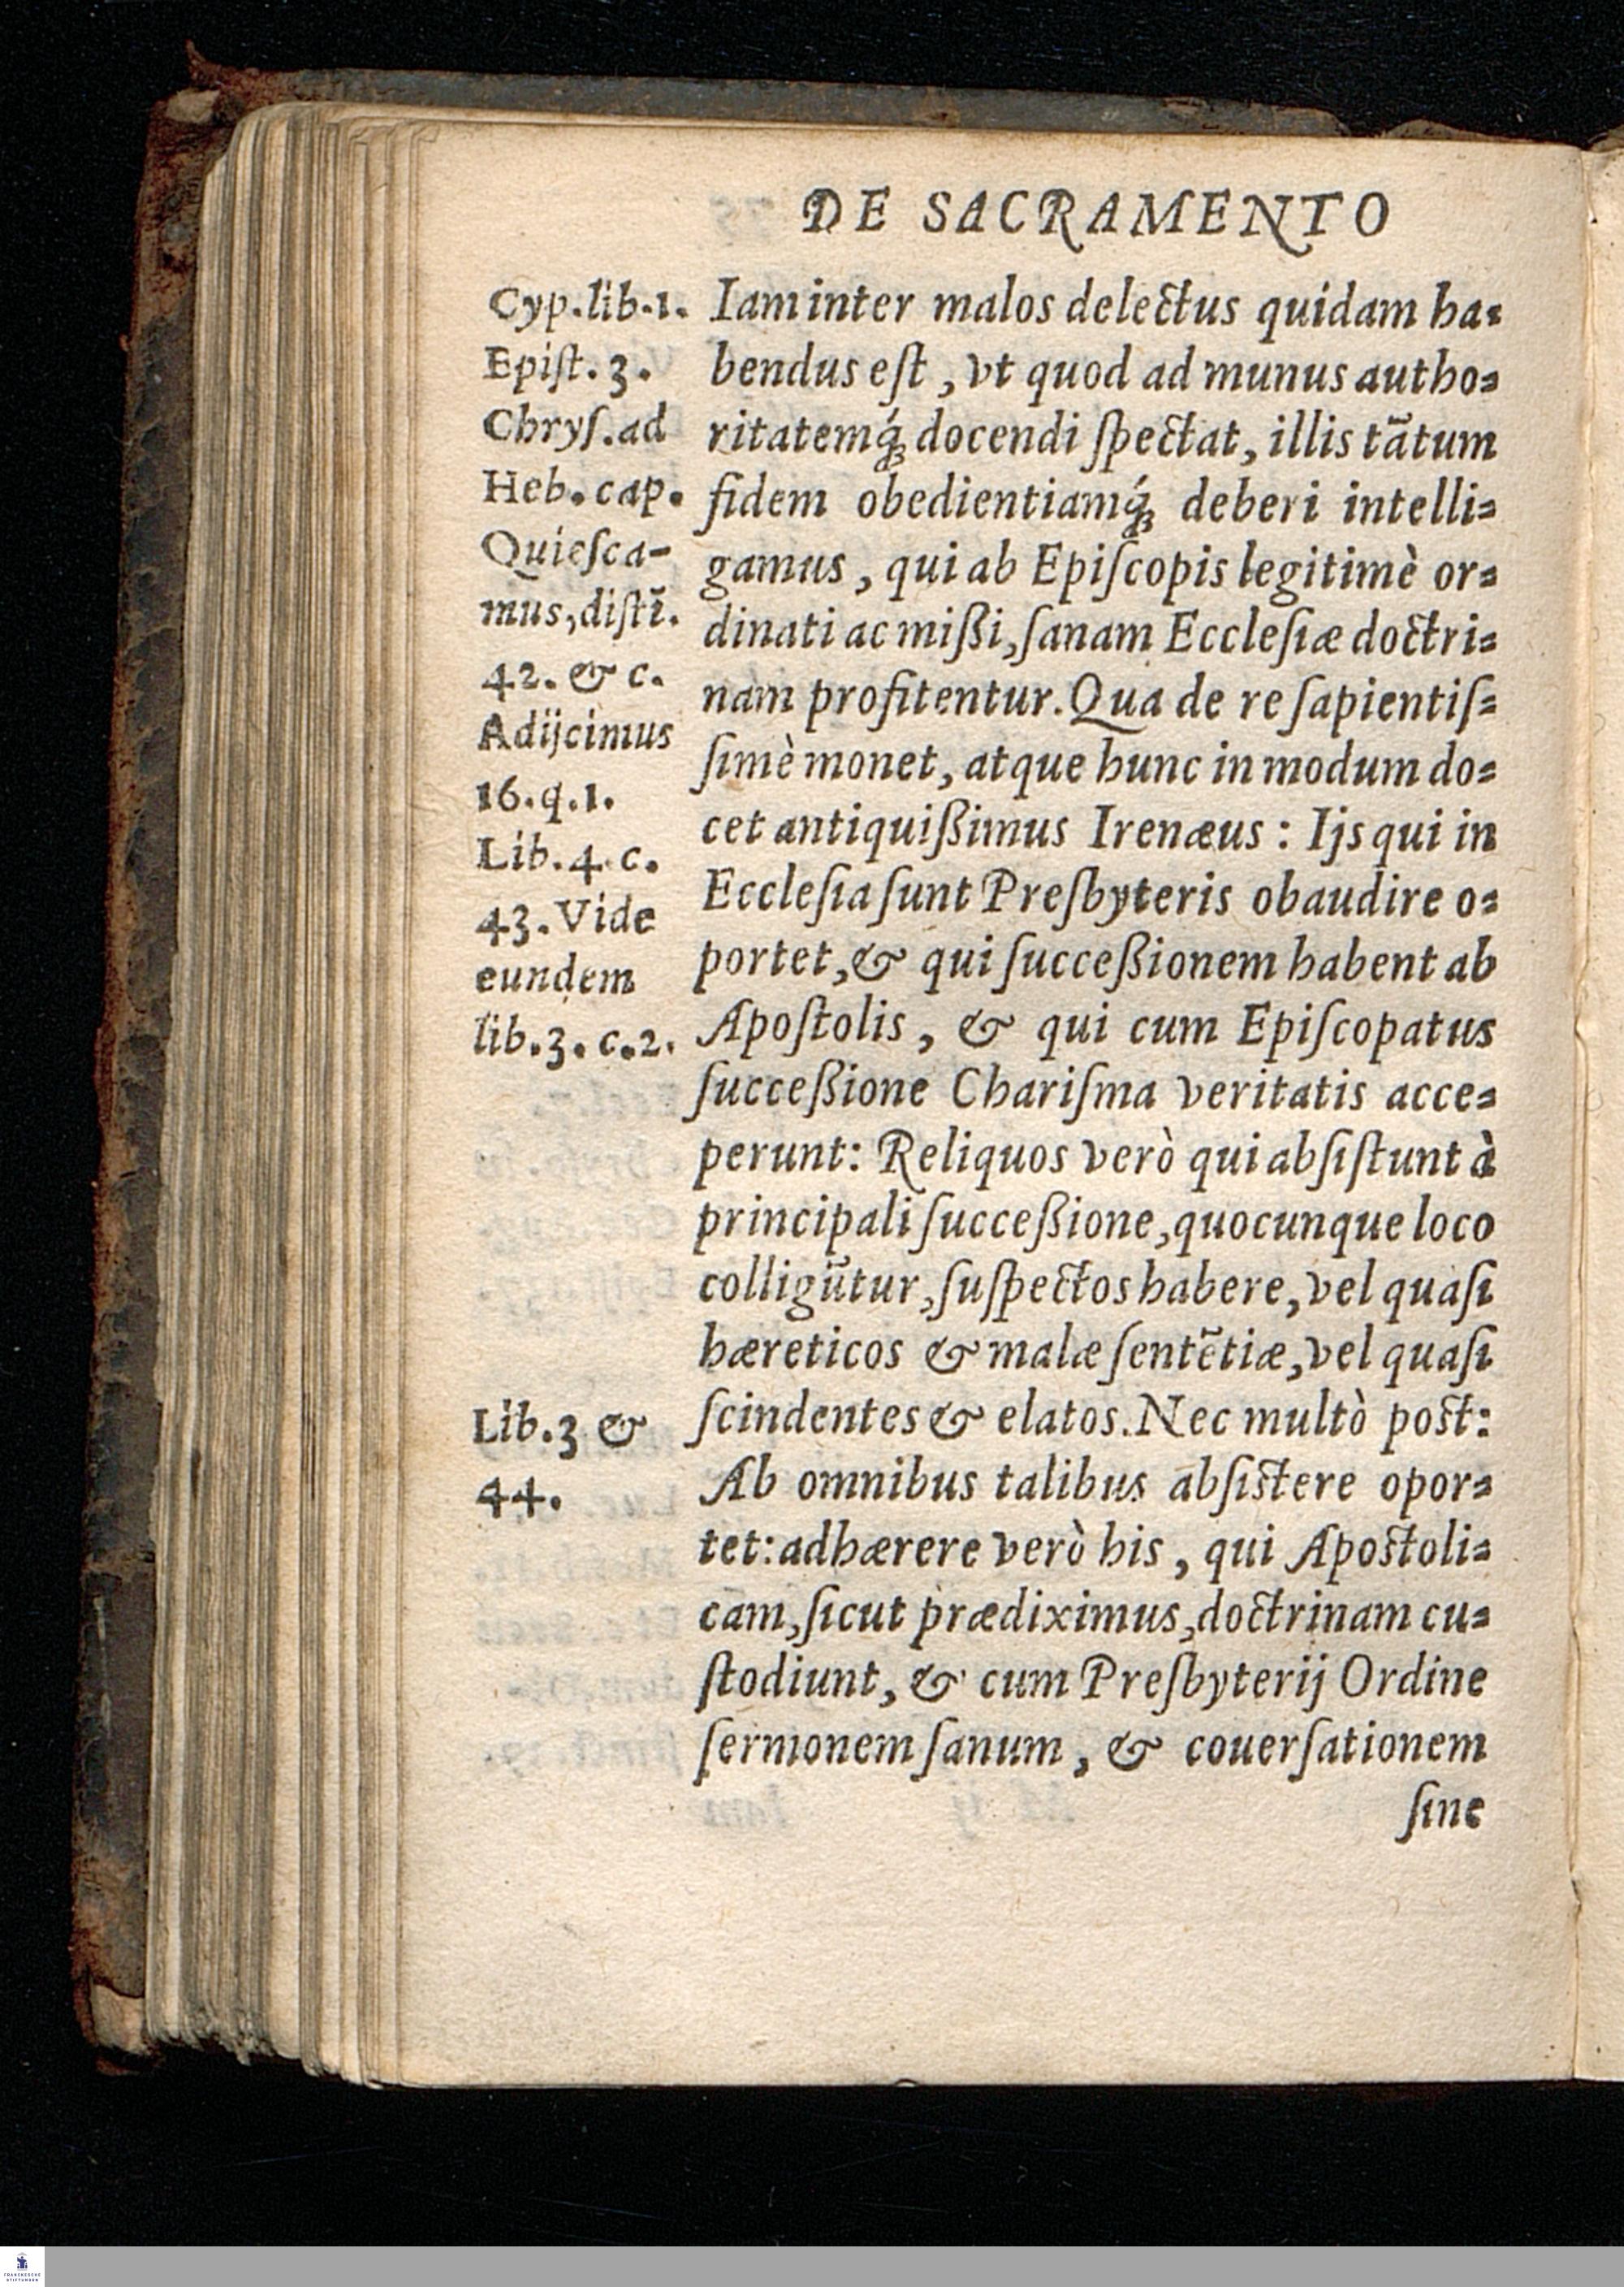 DE SACRAMENTO
Cyp.lib.1.
Epiſt. 3.
Chryſ.ad
Heb. cap.
Quieſca-
mus, diſtĩ.
42. & c.
Adijcimus
16. q. 1.
Lib. 4. c.
43. Vide
eundem
lib. 3. c. 2.
Lib. 3 &
44.
Iam inter malos delectus quidam ha-
bendus eſt, vt quod ad munus autho-
ritatemq́; docendi ſpectat, illis tãtum
fidem obedientiamq́; deberi intelli-
gamus, qui ab Epiſcopis legitimè or-
dinati ac mißi, ſanam Eccleſiæ doctri-
nam profitentur. Qua de re ſapientiſ-
ſimè monet, atque hunc in modum do-
cet antiquißimus Irenæus: Ijs qui in
Eccleſia ſunt Preſbyteris obaudire o-
portet, & qui ſucceßionem habent ab
Apoſtolis, & qui cum Epiſcopatus
ſucceßione Chariſma veritatis acce-
perunt: Reliquos verò qui abſiſtunt à
principali ſucceßione, quocunque loco
colligũtur, ſuſpectos habere, vel quaſi
hæreticos & malæ ſentẽtiæ, vel quaſi
ſcindentes & elatos. Nec multò poſt:
Ab omnibus talibus abſiſtere opor-
tet: adhærere verò his, qui Apoſtoli-
cam, ſicut prædiximus, doctrinam cu-
ſtodiunt, & cum Preſbyterij Ordine
ſermonem ſanum, & couerſationem
ſine
FRANCKESCHE
STIFTUNGEN